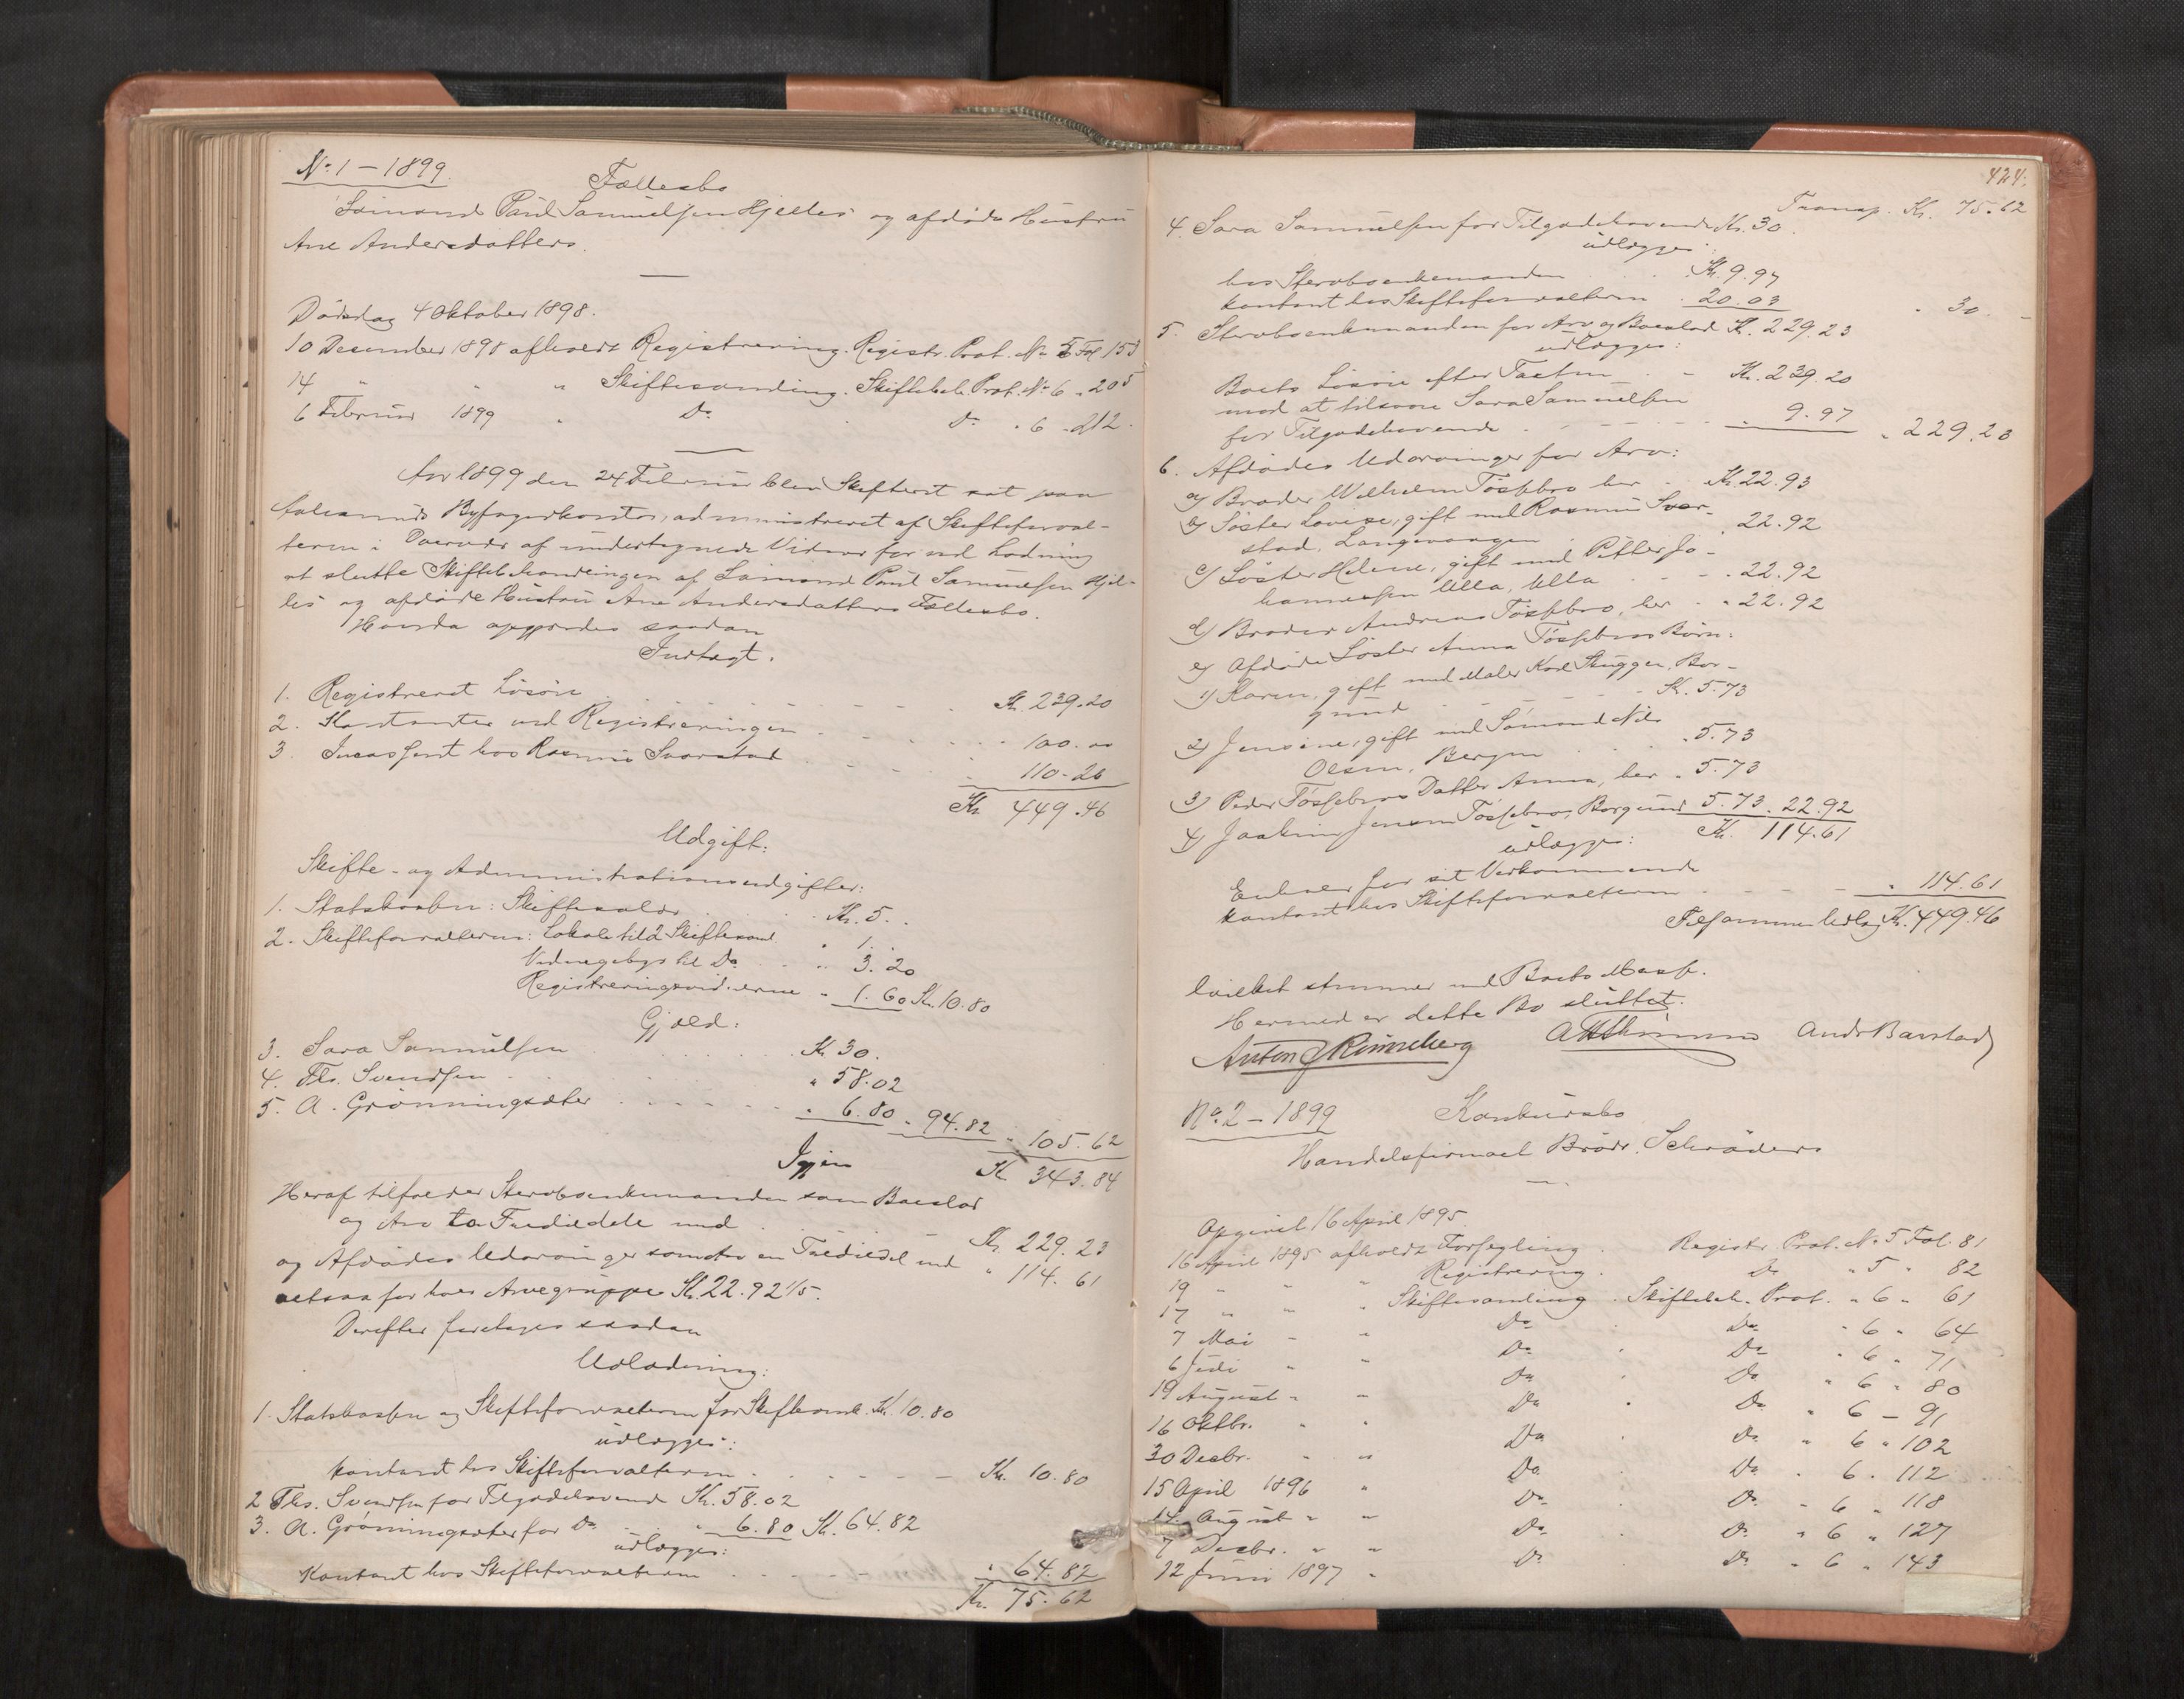 No 1 - 1899.
Fællesbo
Sömand Paul Samuelsen Hjelles og afdöde Hustru
Ane Andersdatters.
Dödsdag 4 Oktober 1898.
10 December 1898 afholdt Registrering. Registr. Prot. No 5 Fol 153
14 " " " Skiftesamling. Skiftebeh. Prot. No 6 " 205
6 Februar 1899 " Do Do " 6 " 212.
Aar 1899 den 24 Februar blev Skifteret sat paa
Aalesunds Byfogedkontor, administreret af Skifteforval-
teren i Overvær af undertegnede Vidner for ved Lodning
at slutte Skiftebehandlingen af Sömand Paul Samuelsen Hjel-
les og afdöde Hustru Ane Andersdatters Fællesbo.
Hvorda opgjordes saadan
Indtægt.
1. Registreret Lösöre Kr. 239.20
2. Kontanter ved Registreringen " 100.00
3 Incasseret hos Rasmus Svorstad " 110.26
Kr 449.46
Udgift:
Skifte- og Administrationsudgifter:
1. Statskassen: Skiftesalær Kr. 5.
2. Skifteforvalteren: Lokale til 2 Skiftesaml. " 1.
Vidnegebyr til Do " 3.20
Registreringsvidnerne " 1.60 Kr. 10.80
Gjæld:
3. Sara Samuelsen Kr. 30.
4. Ths. Svendsen " 58.02
5. A. Grönningsæter " 6.80 " 94.82 " 105.62
Igjen Kr 343.84
Heraf tilfalder Stervboenkemanden som Boeslod
og Arv to Trediedele med Kr. 229.23
og Afdödes Udarvinger sammen en Trediedel med " 114.61
altsaa for hver Arvegruppe Kr. 22.92 1/5.
Derefter foretages saadan
Udlodning:
1. Statskassen og Skifteforvalteren for Skifteomk. Kr. 10.80
udlægges:
kontant hos Skifteforvalteren Kr. 10.80
2 Ths. Svendsen for Tilgodehavende Kr. 58.02
3. A. Grönningsæter for Do " 6.80 Kr. 64.82
udlægges:
Kontant hos Skifteforvalteren " 64.82
Kr. 75.62
424.
Transp. Kr. 75.62
4. Sara Samuelsen for Tilgodehavende Kr. 30.
udlægges:
hos Stervboenkemanden Kr. 9.97
kontant hos Skifteforvalteren 20.03 " 30.
5. Stervboenkemanden for Arv og Boeslod Kr. 229.23
udlægges:
Boets Lösöre efter Taxten Kr. 239.20
mod at tilsvare Sara Samuelsen
for Tilgodehavende " 9.97 " 229.23
6. Afdödes Udarvinger for Arv:
a) Broder Wilhelm Tössebro her Kr. 22.93
b) Söster Lovise, gift med Rasmus Svor-
stad, Langevaagen " 22.92
c) Söster Helene, gift med Petter Jo-
hannessen Ulla, Ulla " 22.92
d) Broder Andreas Tössebro, her " 22.92
e) Afdöde Söster Anna Tössebros Börn:
1) Karen, gift med Maler Karl Skuggen, Bor-
gund Kr. 5.73
2) Jensine, gift med Sömand Nils
Olsen, Bergen " 5.73
3) Peder Tössebros Datter Anna, her " 5.73
4) Joakim Jensen Tössebro, Borgund 5.73 " 22.92
Kr. 114.61
udlægges:
Enhver for sit Vedkommende
kontant hos Skifteforvalteren " 114.61
Tilsammen Udlæg Kr. 449.46
hvilket stemmer med Boets Masse.
Hermed er dette Bo sluttet.
Anton J Rönneberg Andr Barstad
No 2 - 1899 Konkursbo
Handelsfirmaet Brödr. Schröders
Opgivet 16 April 1895.
16 April 1895 afholdt Forsegling. Registr. Prot. No 5 Fol. 81
19 " " " Registrering. Do " 5 " 82
17 " " " Skiftesamling. Skiftebeh. Prot. " 6 " 61
7 Mai " " Do Do " 6 " 64
6 Juli " " Do Do " 6 " 71
19 August " " Do Do " 6 " 80
16 Oktbr. " " Do Do " 6 - 91
30 Decbr. " " Do Do " 6 " 102
15 April 1896 " Do Do " 6 " 112
14 August " " Do Do " 6 " 118
7 Decbr. " " Do Do " 6 " 127
12 Juni 1897 " Do Do " 6 " 143